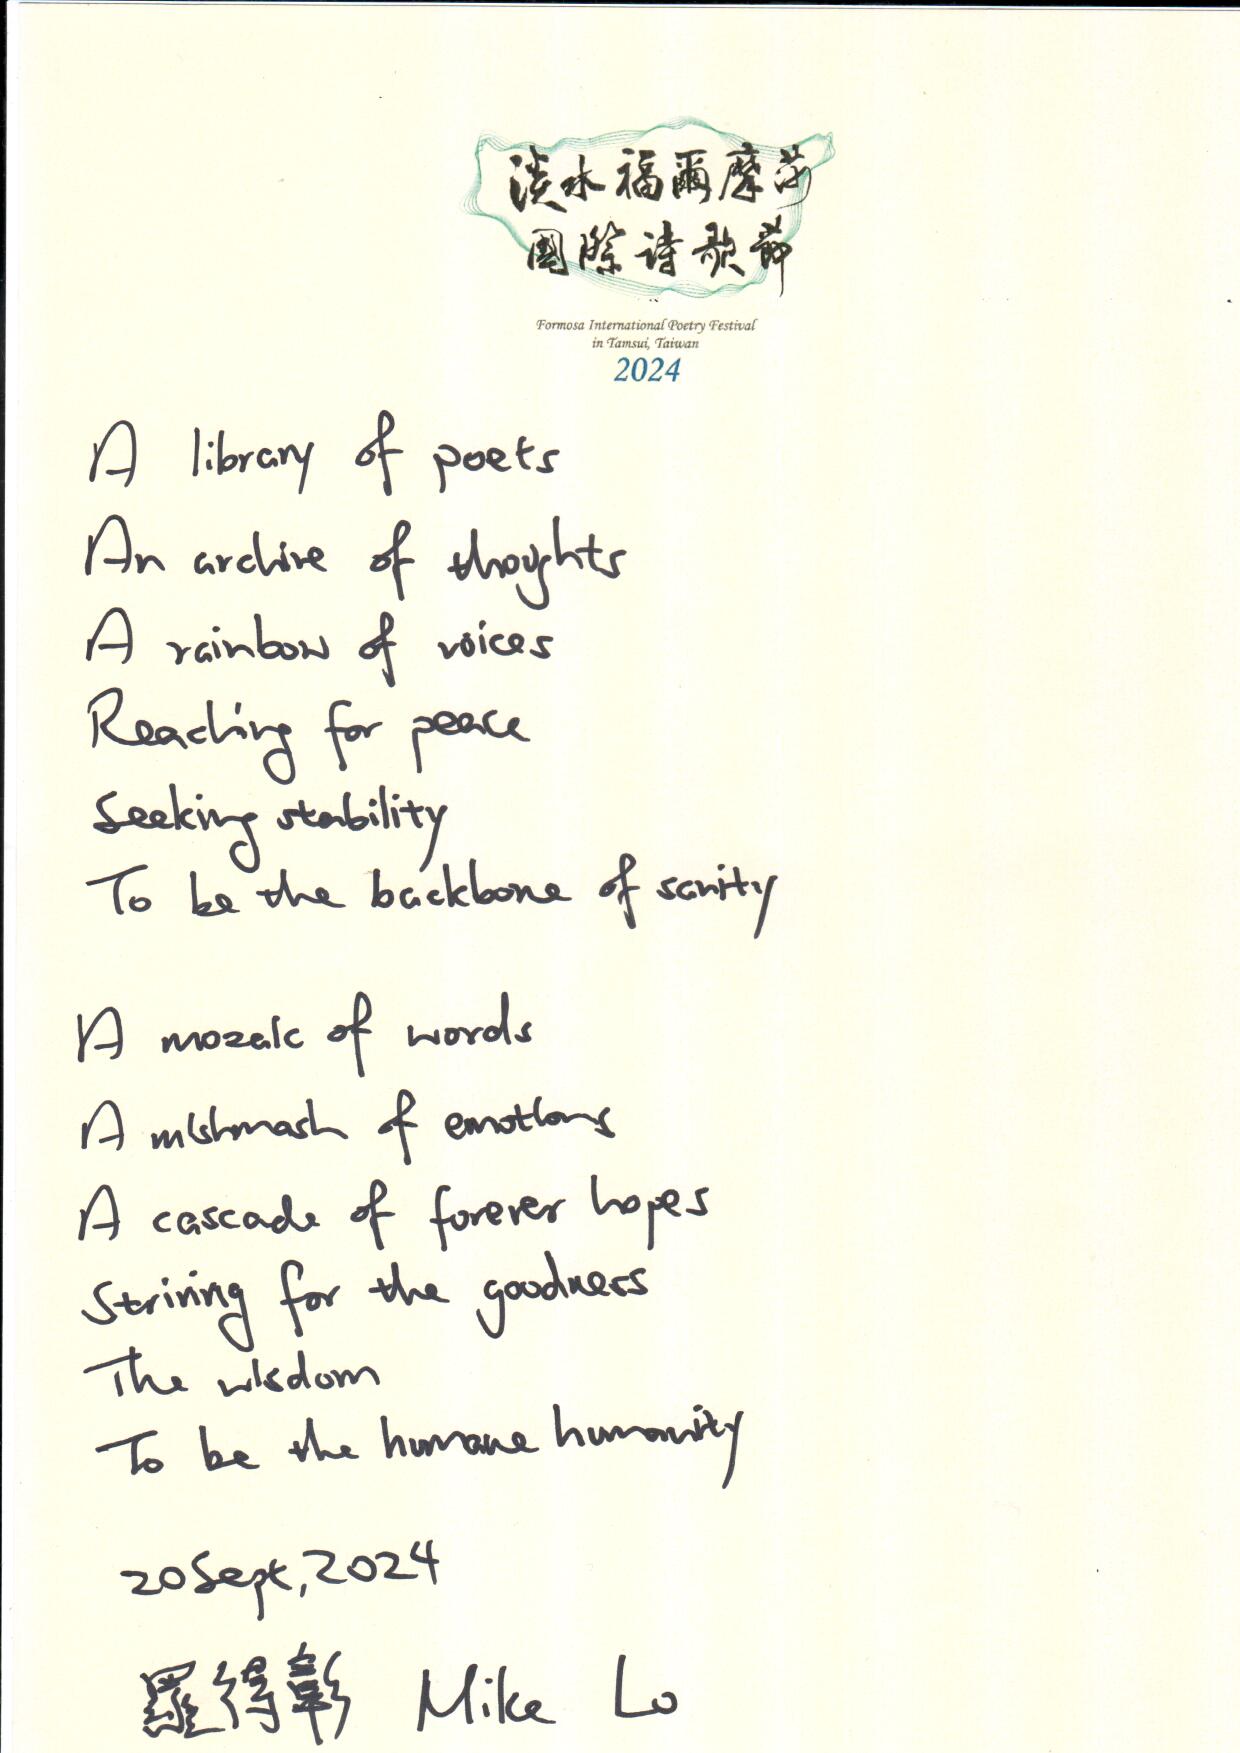 淡水福爾摩莎
國際詩歌節
Formosa International Poetry Festival
in Tamsui, Taiwan
2024
A library of poets
An archive of thoughts
A rainbow of voices
Reaching for peace
Seeking stability
To be the backbone of sanity
A mozaic of words
A mishmash of emotions
A cascade of forever hopes
Striving for the goodness
The wisdom
To be the humane humanity
20 Sept, 2024
羅得彰 Mike Lo